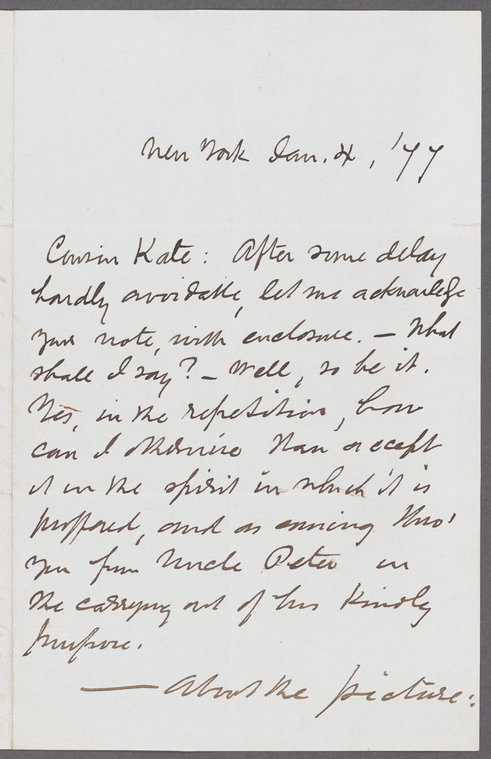 New York Jan. 4, '77
Cousin Kate: After some delay
hardly avoidable, let me acknowledge
your note, with enclosure. — What
shall I say? — Well, so be it.
Yes, in the repetition, how
can I otherwise than accept
it in the spirit in which it is
proffered, and as coming thro'
you from Uncle Peter in
the carrying out of his kindly
purpose.
— About the picture: